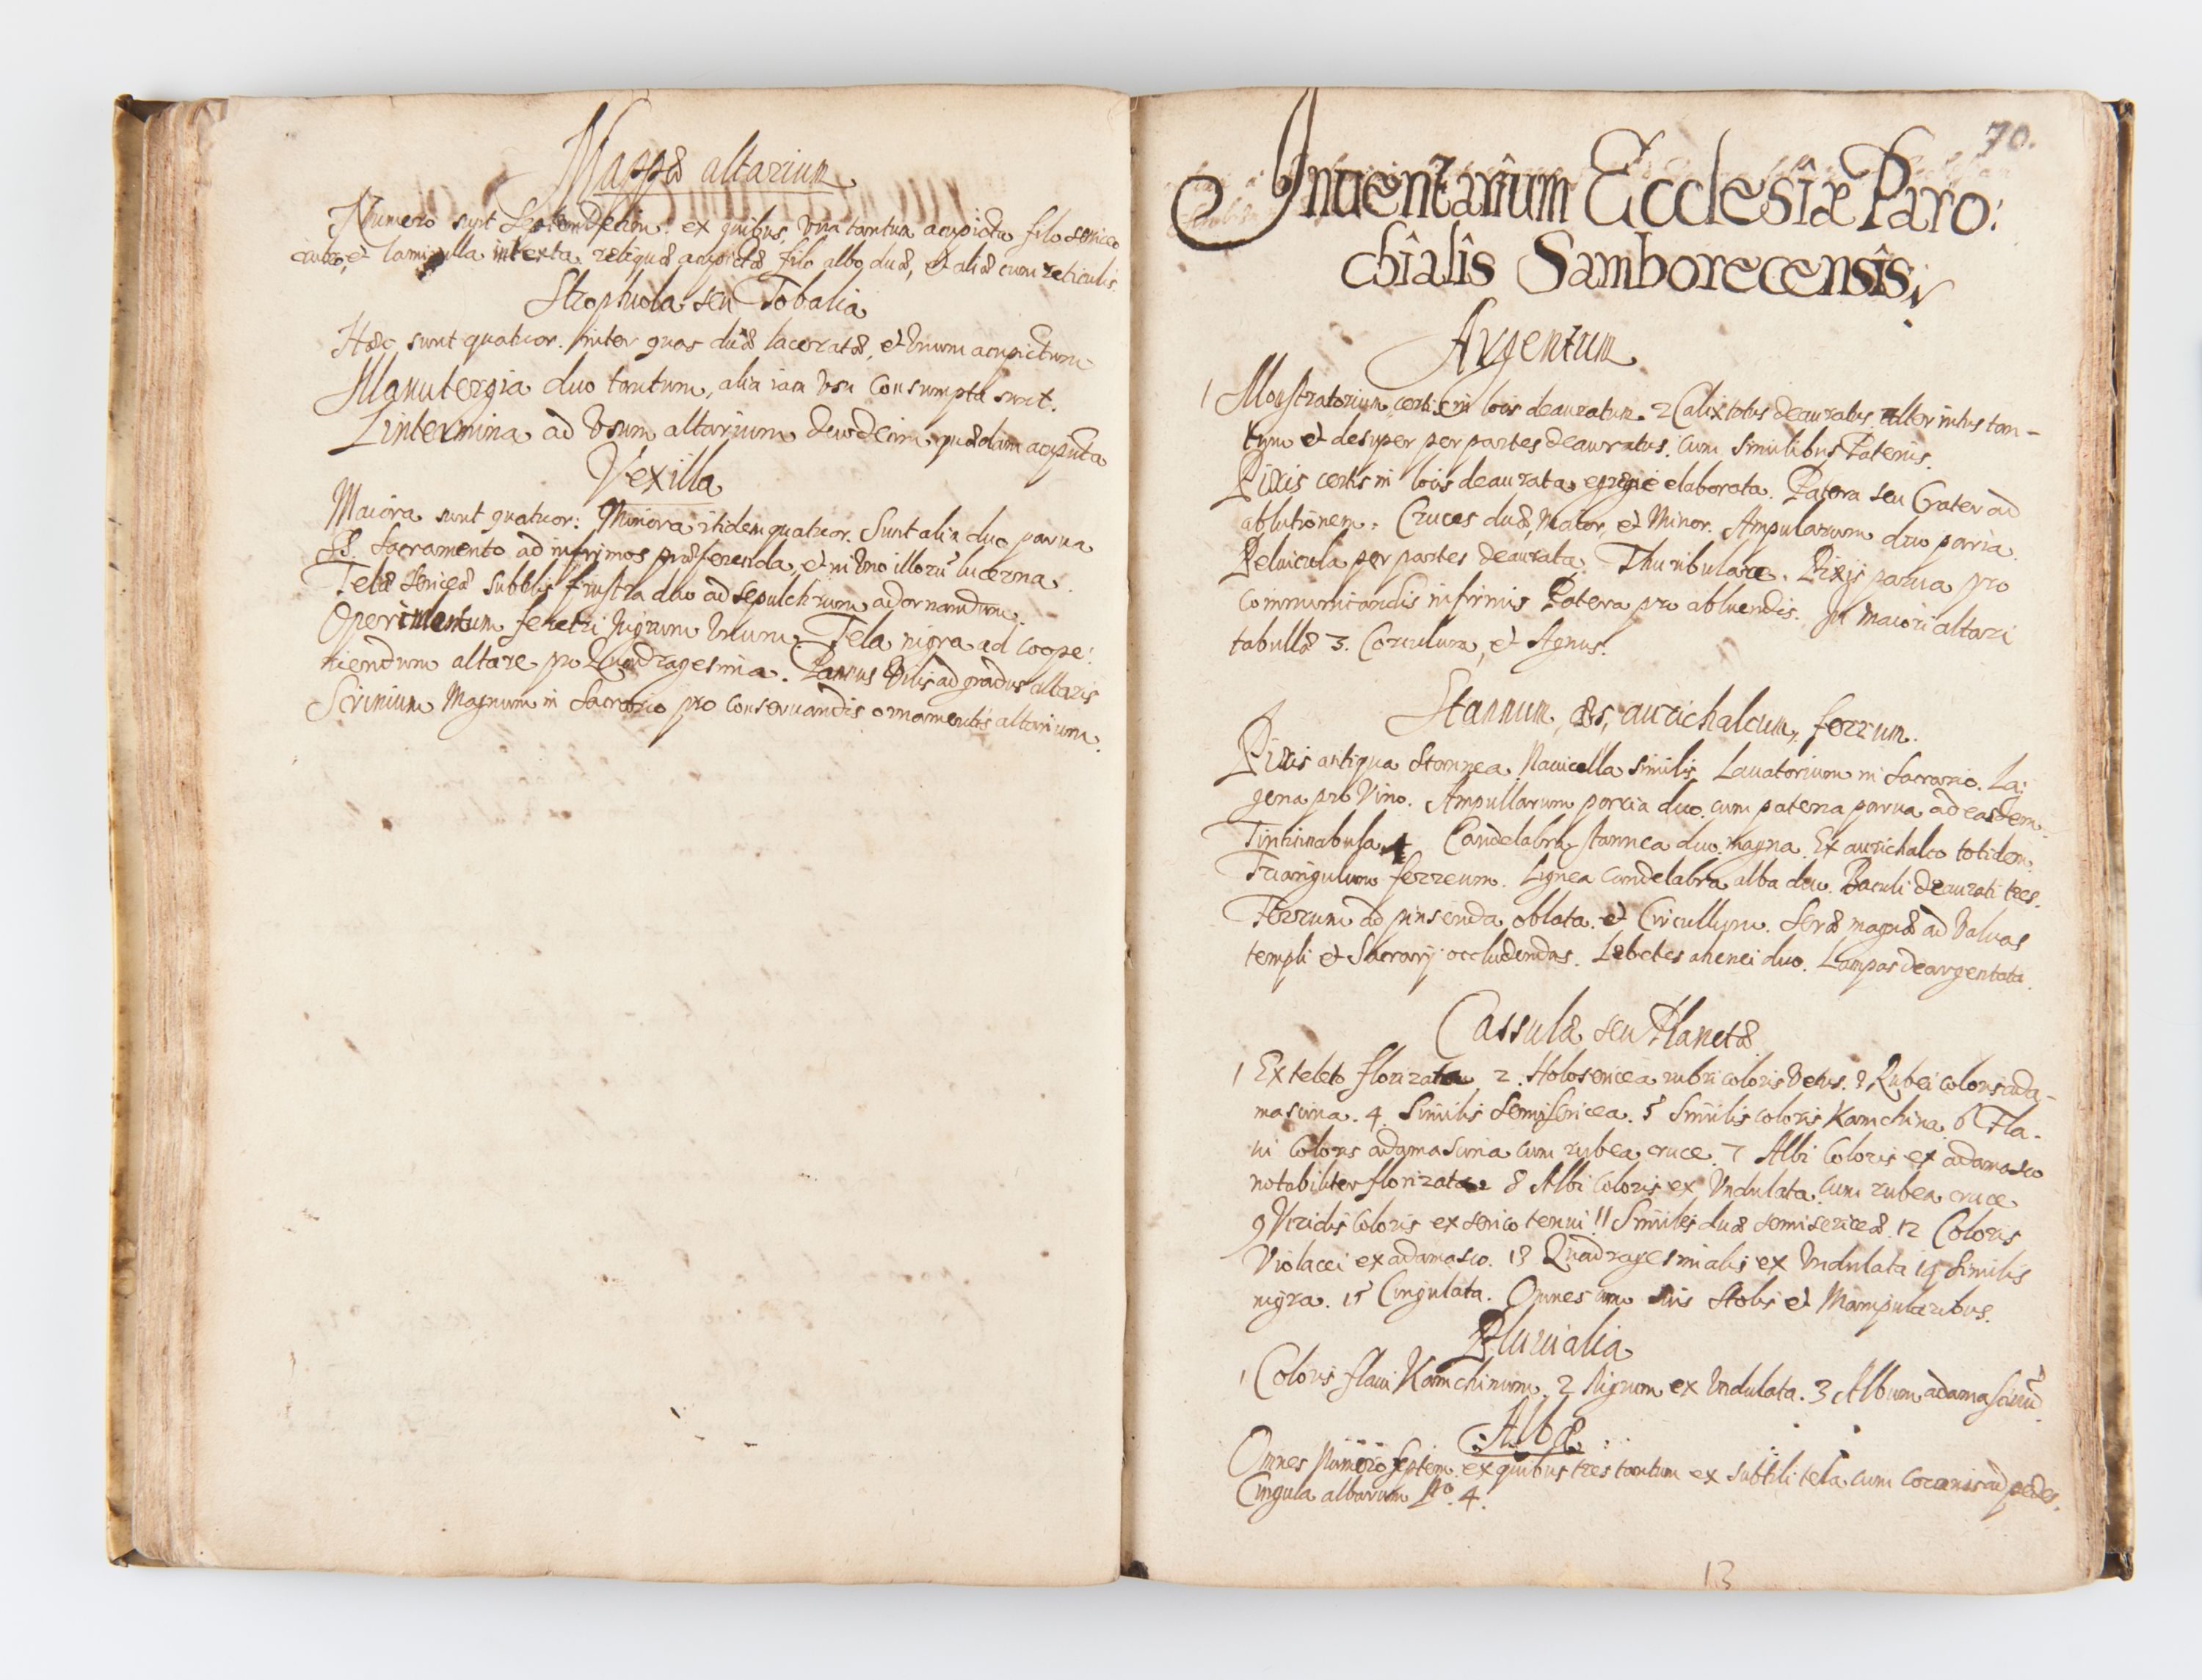 Mappæ altarium
Numero sunt Septendecim: ex quibus, una tantum acupicta filo sericeo
rubro, et lamirulla intexta. reliquæ acupictæ filo albo duæ, et aliæ cum reticulis.
Strophiola seu Tobalia
Hæc sunt quatuor. inter quas duæ laceratæ, et Unum acupictum
Manutergia duo tantum, alia iam Usu Consumpta sunt.
Linteamina ad Usum altarium duodecim, quædam acupicta
Vexilla
Maiora sunt quatuor: Minora itidem quatuor. Sunt alia duo parua
SS. Sacramento ad infirmos præferenda, et in Uno illorũ lucerna.
Telæ sericeæ subtilis frustra duo ad sepulchrum adornandum.
Operimentum feretri Nigrum Unum. Tela nigra ad coope:
riendum altare pro Quadragesima. Pannus Vilis ad gradus altaris
Scrinium Magnum in Sacrario pro conseruandis ornamentis altarium.
70.
Inuentarium Ecclesiæ Paro:
chialis Samborecensis
Argentum
1 Monstratorium certis in locis deauratum. 2 Calix totus deauratus. alter intus tan-
tum et desuper per partes deauratus. cum similibus Patenis.
Pixis certis in locis deaurata, egregie elaborata. Patera seu Crater ad
ablutionem. Cruces duæ, Maior, et Minor. Ampularum duo paria.
Peluicula per partes deaurata. Thuribulare. Pixis parua pro
communicandis infirmis Patera pro abluendis. In Maiori altari
tabullæ 3. Corculum, et Agnus.
Stannum, æs, aurichalcum, ferrum.
Pixis antiqua Stannea. Nauicella similis. Lauatorium in Sacrario. La:
gena pro Vino. Ampullarum parcia duo. cum patena parua ad easdem.
Tintinabula 4 Candelabra stannea duo. magna. Ex aurichalco totidem.
Triangulum ferreum. Lignea candelabra alba duo. Baculi deaurati tres.
Ferrum ad pinsenda oblata. et Circullum. Seræ magnæ ad Valuas
templi et Sacrarij occludendas. Lebetes ahenei duo. Lampas deargentata.
Cassulæ seu Planetæ
1 Ex teleto florizata 2. Holosericea rubri coloris Vetus. 3 Rubei coloris ada-
mascina. 4. Similis Semisericea. 5 Similis coloris Kamchina. 6 Fla-
ui Coloris adamascina cum rubea cruce. 7 Albi Coloris ex adamasco
notabiliter florizata 8 Albi Coloris ex Undulata cum rubea cruce
9 Viridis Coloris ex serico tenui 11 Similes duæ semisericeæ. 12 Coloris
Violacei ex adamasco. 13 Quadragesimalis ex Undulata 14 Similis
nigra. 15 Cingulata. Omnes cum suis Stolis et Manipularibus.
Pluuialia
1 Coloris flaui Kamchinum 2 Nigrum ex Undulata. 3 Album adamascinũ
Albæ
Omnes Numero septem ex quibus tres tantum ex subtili tela cum ad pedes.
Cingula albarum No. 4.
13